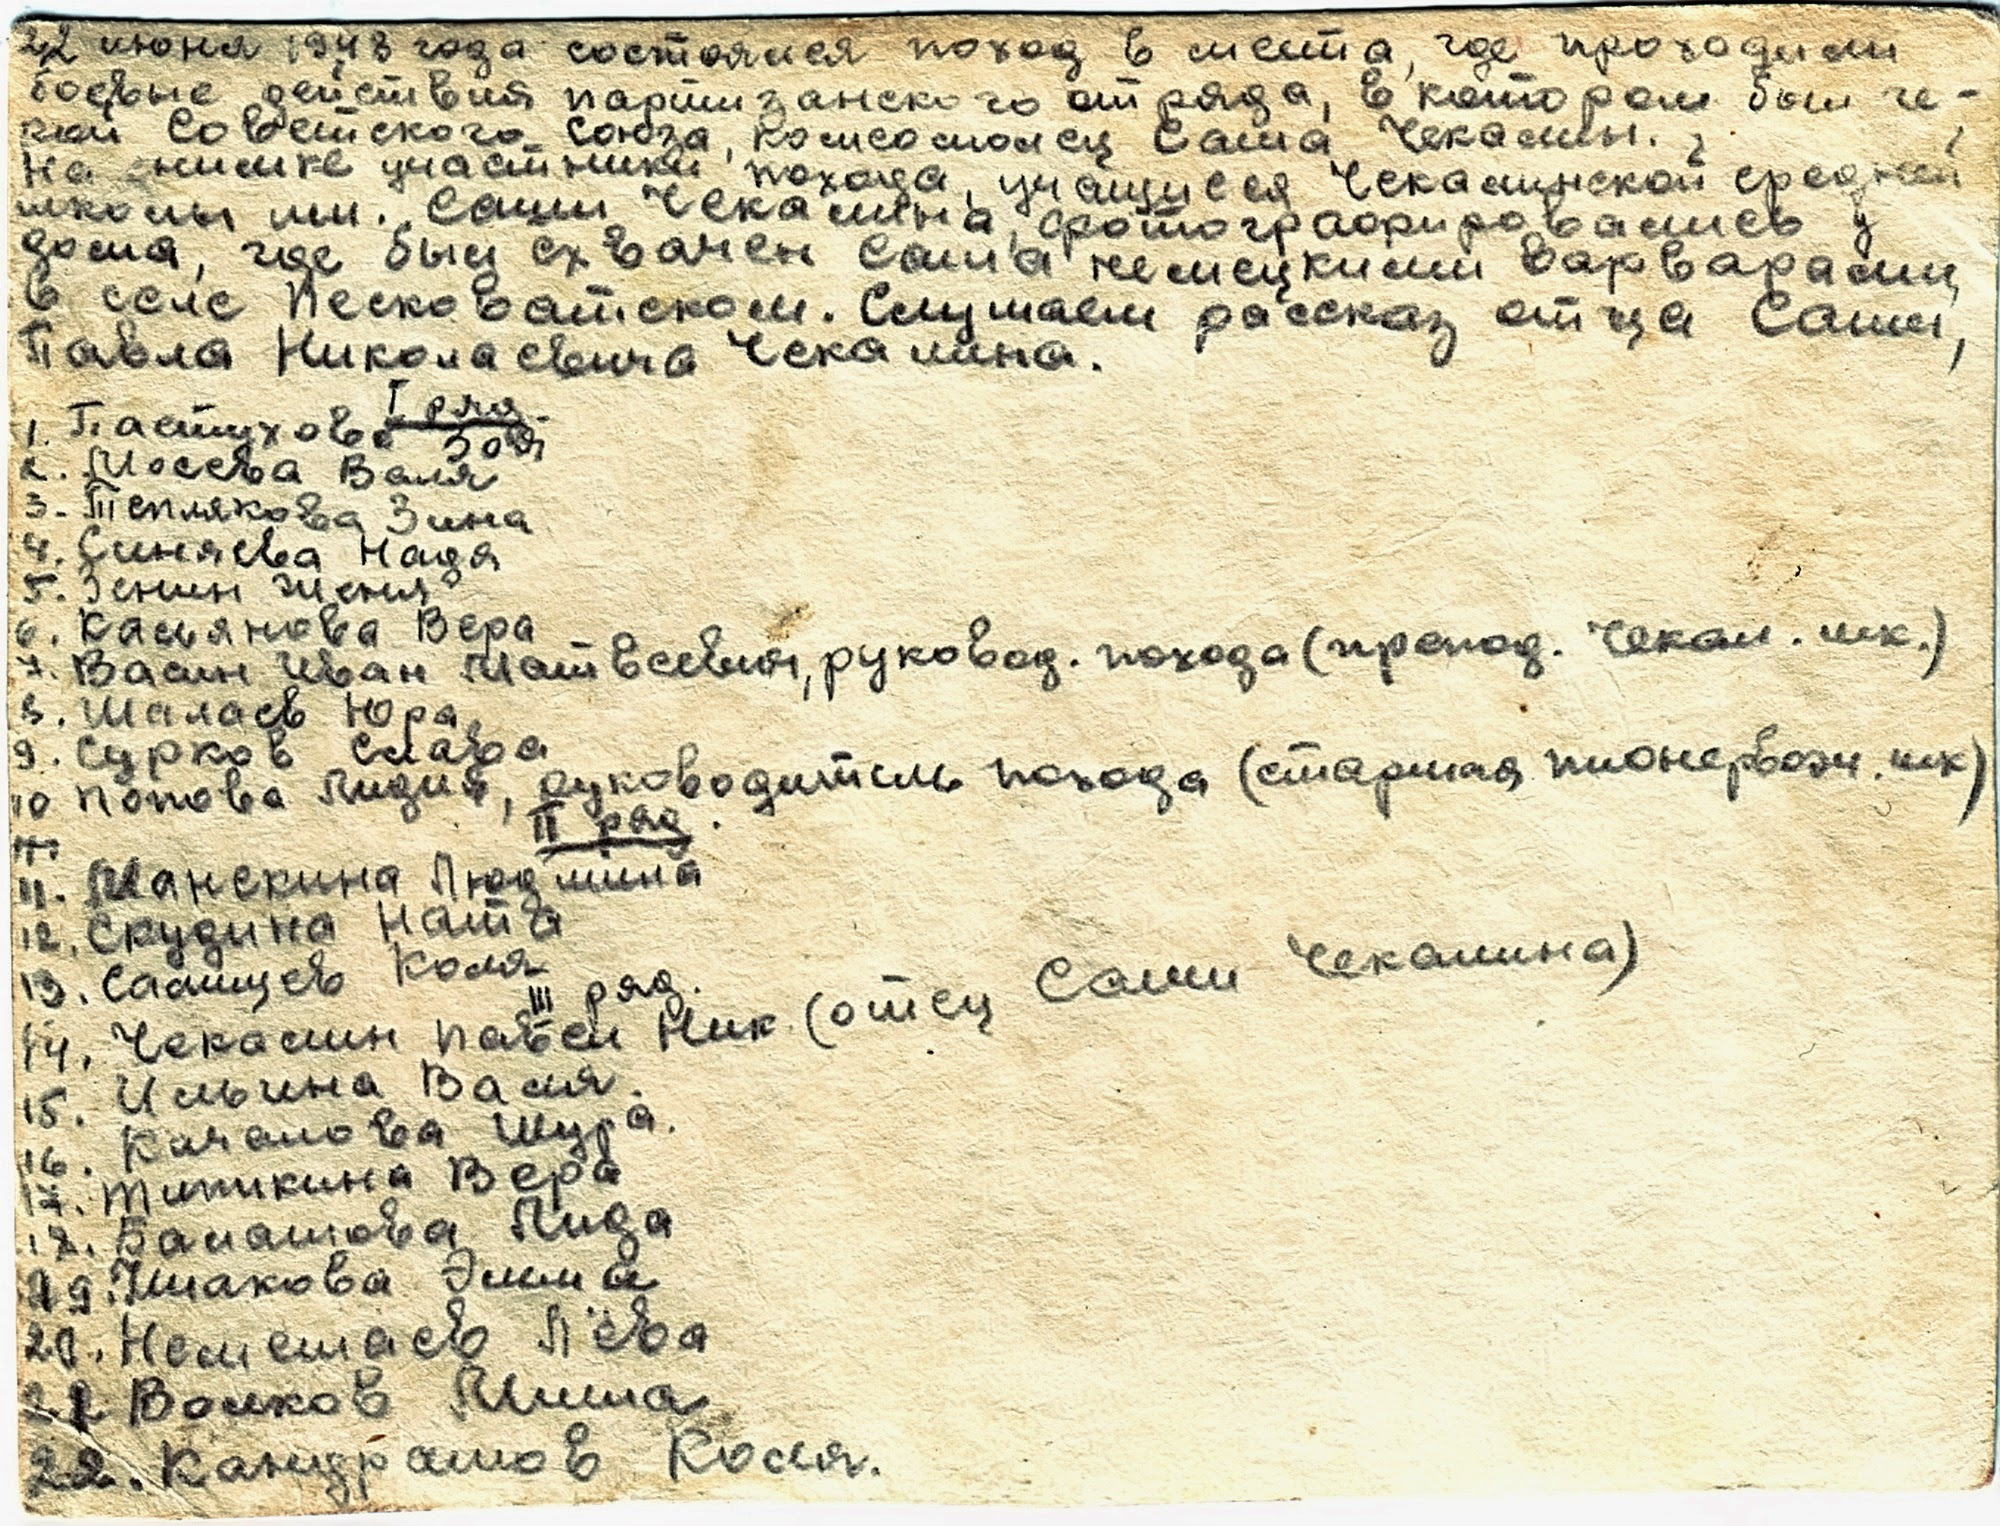 22 июня 1948 года состоялся поход в места, где проходили
боевые действия партизанского отряда, в котором был ге-
рой Советского Союза, комсомолец Саша Чекалин.
На снимке участники похода, учащиеся Чекалинской средней
школы им. Саши Чекалина, фотографировались у
дома, где был схвачен Саша немецкими варварами,
в селе Песковатском. Слушаем рассказ отца Саши,
Павла Николаевича Чекалина.
I ряд
1. Пастухова Зоя
2. Мосева Валя
3. Теплякова Зина
4. Синяева Надя
5. Зенин Женя
6. Касьянова Вера
7. Васин Иван Матвеевич, руковод. похода (препод. Чекал. шк.)
8. Шалаев Юра
9. Сурков Слава
10 Попова Лидия, руководитель похода (старшая пионервож. шк)
II ряд.
11. Манскина Людмила
12. Скудина Ната
13. Салищев Коля
III ряд.
14. Чекалин Павел Ник. (отец Саши Чекалина)
15. Ильина Валя.
16. Качалова Шура.
17. Типикина Вера
18. Балашова Лида
19. Ушакова Эмма
20. Немешаев Лёва
21 Волков Миша
22. Кандрашов Коля.